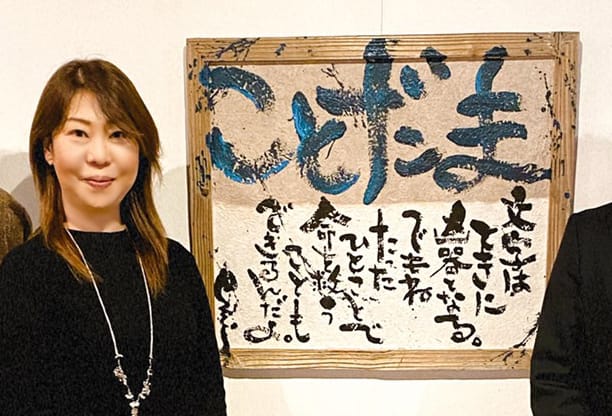 ことだま
文字は
ときに
凶器となる。
でもね
たった
ひとことで
命を救う
ことも
できるんだよ。